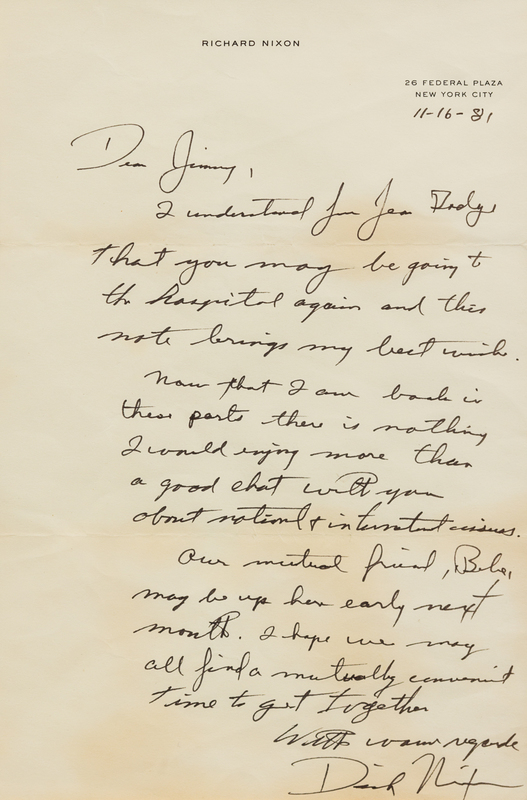 RICHARD NIXON
26 FEDERAL PLAZA
NEW YORK CITY
11-16-81
Dear Jimmy,
I understand from Jea
that you may be going to
the hospital again and this
note brings my best wishes.
Now that I am back in
these parts there is nothing
I would enjoy more than
a good chat with you
about national & international issues.
Our mutual friend, Bebe,
may be up here early next
month. I hope we may
all find a mutually convenient
time to get together
With warm regards
Dick Nixon